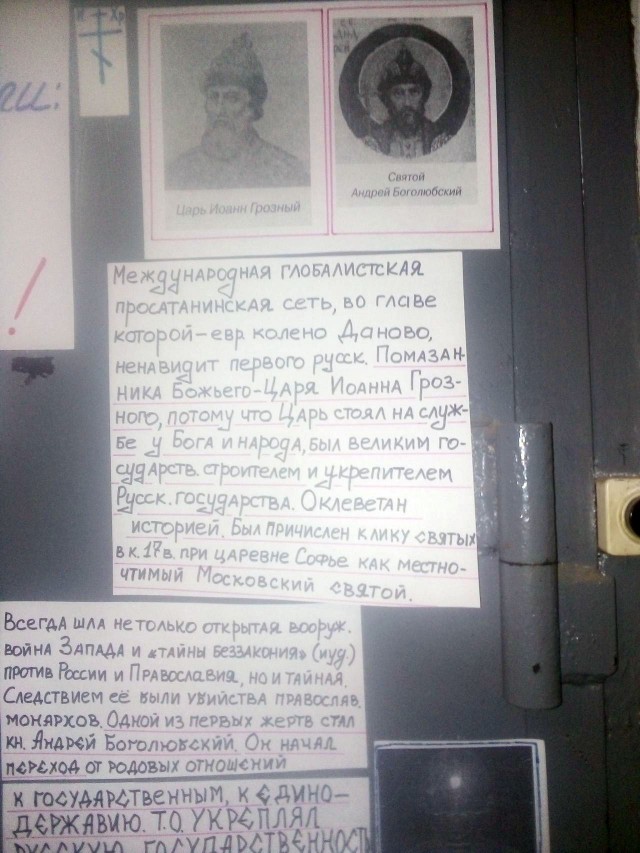 ги:
!
Хр
Царь Иоанн Грозный
Святой
Андрей Боголюбский
Международная глобалистская
просатанинская сеть, во главе
которой – евр колено Даново,
ненавидит первого русск. Помазан-
ника Божьего – Царя Иоанна Гроз-
ного, потому что Царь стоял на служ-
бе у Бога и народа, был великим го-
сударств. строителем и укрепителем
Русск. государства. Оклеветан
историей. Был причислен к лику святых
в к. 17 в. при царевне Софье как местно-
чтимый Московский святой.
Всегда шла не только открытая вооруж.
война Запада и «тайны беззакония» (иуд.)
против России и Православия, но и тайная.
Следствием её были убийства православ.
монархов. Одной из первых жертв стал
кн. Андрей Боголюбский. Он начал
переход от родовых отношений
к государственным, к едино-
державию. Т.о. укреплял
русскую государственность